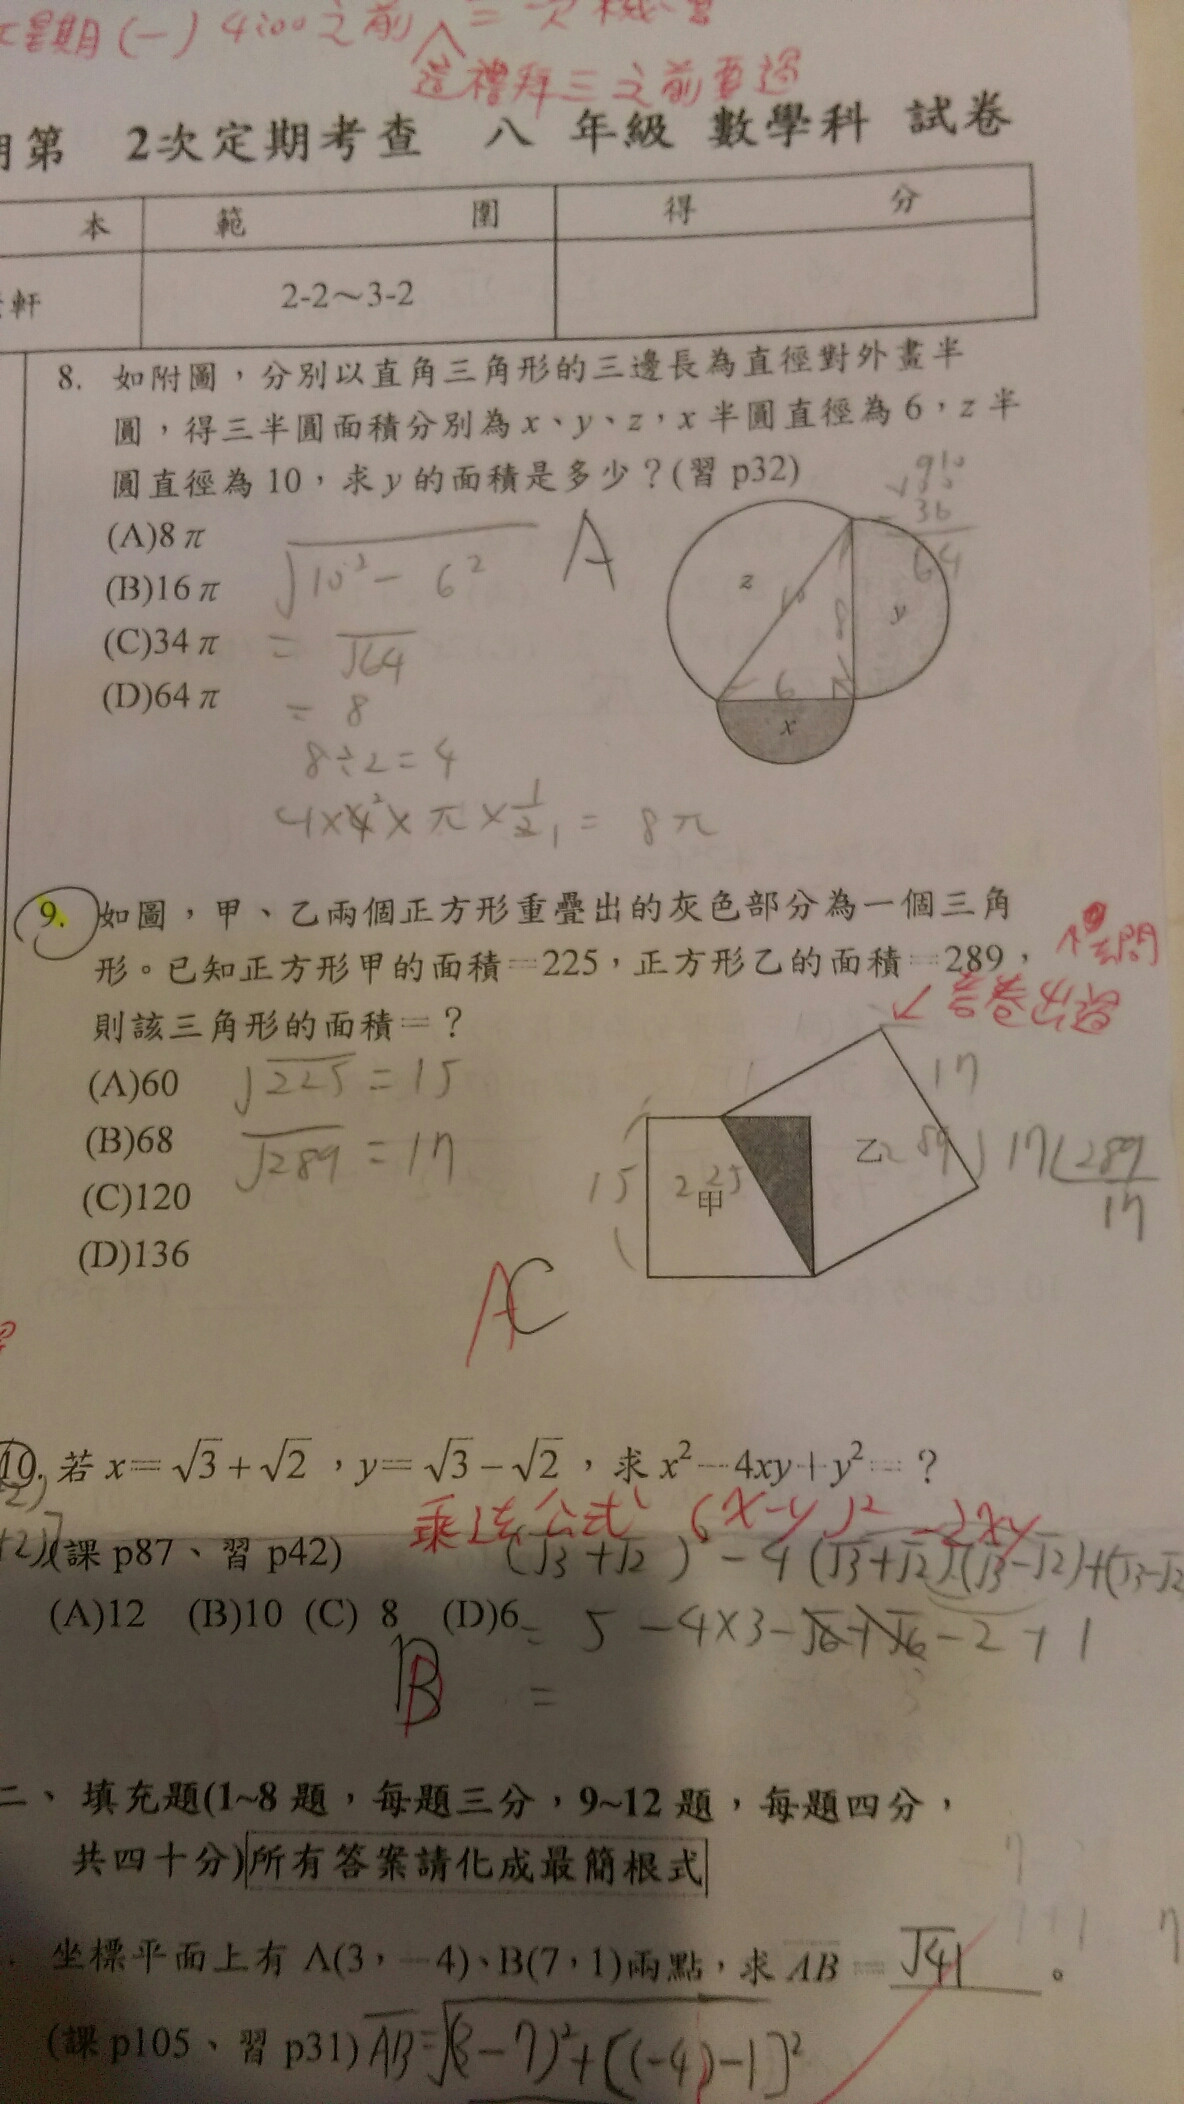 星期(一) 4:00之前 二次機會
這禮拜三之前要過
期第 2次定期考查 八 年級 數學科 試卷
本 範 圍 得 分
軒 2-2～3-2
8. 如附圖，分別以直角三角形的三邊長為直徑對外畫半
圓，得三半圓面積分別為 x、y、z，x 半圓直徑為 6，z 半
圓直徑為 10，求 y 的面積是多少？(習 p32)
(A)8π
(B)16π
(C)34π
(D)64π
√10²－6²
= √64
= 8
8÷2=4
4×4²×π×1/2 = 8π
A
36
64
z
10
8
y
6
x
9. 如圖，甲、乙兩個正方形重疊出的灰色部分為一個三角
形。已知正方形甲的面積=225，正方形乙的面積=289，
則該三角形的面積=？
(A)60
(B)68
(C)120
(D)136
√225 = 15
√289 = 17
17
15
225
甲
乙
289
17
289
17
AC
10. 若 x=√3+√2，y=√3−√2，求 x²−4xy+y²=？
乘法公式 (x-y)²-2xy
(課 p87、習 p42)
(√3+√2)²-4(√3+√2)(√3-√2)+(√3-√2
(A)12 (B)10 (C) 8 (D)6
= 5-4×3-√6+√6-2+1
B
=
二、填充題(1~8 題，每題三分，9~12 題，每題四分，
共四十分)所有答案請化成最簡根式
坐標平面上有 A(3，−4)、B(7，1)兩點，求 AB = √41。
(課 p105、習 p31) AB=√(3-7)²+[(-4)-1]²